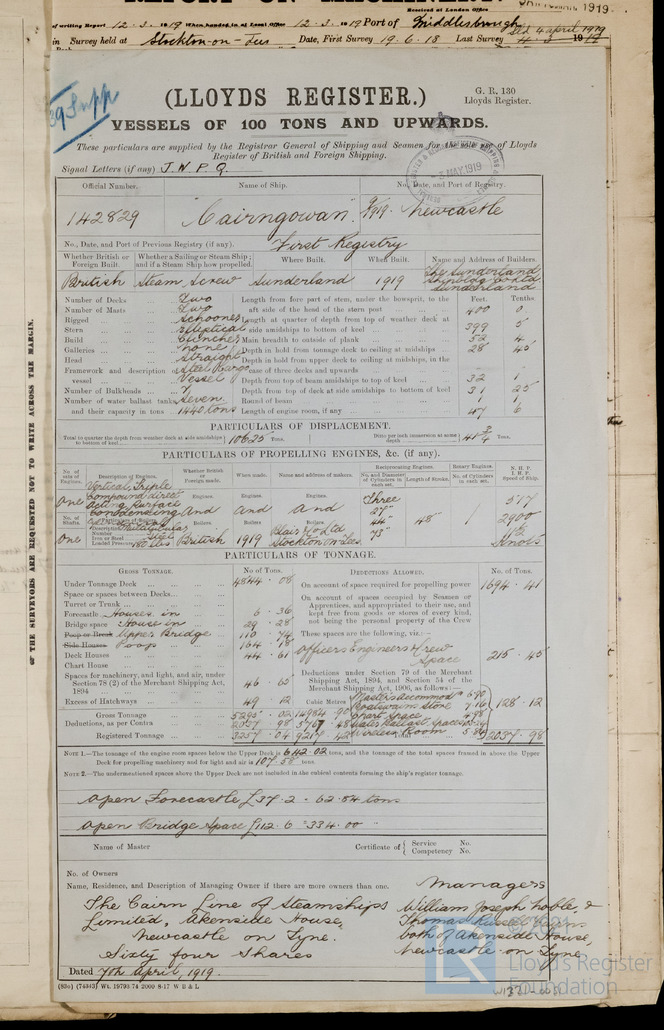 of writing Report 12 . 3 . 1919 When handed in at Local Office 12 . 3 . 1919 Port of Middlesbrough
Received at London Office
1919
in Survey held at Stockton-on-Tees Date, First Survey 19 . 6 . 18 Last Survey 4 . 3 1919
39 Supp
(LLOYDS REGISTER.)
G. R. 130
Lloyds Register.
VESSELS OF 100 TONS AND UPWARDS.
These particulars are supplied by the Registrar General of Shipping and Seamen for the sole use of Lloyds
Register of British and Foreign Shipping.
MAY.1919
Signal Letters (if any) J. W. P. Q.
Official Number. Name of Ship. No., Date, and Port of Registry.
142829 "Cairngowan". 9/1919. Newcastle
No., Date, and Port of Previous Registry (if any). First Registry
Whether British or Foreign Built. Whether a Sailing or Steam Ship; and if a Steam Ship how propelled. Where Built. When Built. Name and Address of Builders.
British Steam Screw Sunderland 1919 The Sunderland
Shipbldg Co Ltd
Sunderland
Number of Decks Two Length from fore part of stem, under the bowsprit, to the Feet. Tenths
Number of Masts Two aft side of head of the stern post 400 0
Rigged Schooner Length at quarter of depth from top of weather deck at
Stern Elliptical side amidships to bottom of keel 399 5
Build Clincher Main breadth to outside of plank 52 4
Galleries none Depth in hold from tonnage deck to ceiling at midships 28 45
Head Straight Depth in hold from upper deck to ceiling at midships, in the
Framework and description of Steel Cargo case of three decks and upwards
vessel Vessel Depth from top of beam amidships to top of keel 32 1
Number of Bulkheads 7 Depth from top of deck at side amidships to bottom of keel 31 25
Number of water ballast tanks, Seven Round of beam 1 1
and their capacity in tons 1440 tons Length of engine room, if any 47 6
PARTICULARS OF DISPLACEMENT.
Total to quarter the depth from weather deck at side amidships to bottom of keel. 10625 Tons. Ditto per inch immersion at same depth 41 3/4 Tons.
PARTICULARS OF PROPELLING ENGINES, &c. (if any).
No. of sets of Engines. Description of Engines. Whether British or Foreign made. When made. Name and address of makers. Reciprocating Engines. Rotary Engines. N. H. P.
No. and Diameter of Cylinders in each set. Length of Stroke. No. of Cylinders in each set. I. H. P. Speed of Ship.
One Vertical Triple Compound direct acting Surface Condensing Engines. Engines. Engines. Three 577
And and And 27" 44" 73" 48" 1 2900
No. of Shafts. Particulars of Boilers. Boilers Boilers Boilers
One Description Multitubular Number Iron or Steel Steel Loaded Pressure 180 lbs British 1919 Blair & Co Ltd Stockton on Tees Knots
PARTICULARS OF TONNAGE.
GROSS TONNAGE. No of Tons. DEDUCTIONS ALLOWED. No. of Tons.
Under Tonnage Deck 4844 . 08 On account of space required for propelling power 1694 . 41
Space or spaces between Decks
Turret or Trunk On account of spaces occupied by Seamen or
Forecastle Houses in 6 . 36 Apprentices, and appropriated to their use, and
Bridge space House in 29 . 28 kept free from goods or stores of every kind,
not being the personal property of the Crew
Poop or Break Upper Bridge 110 . 74 These spaces are the following, viz. :—
Side Houses Poop 164 . 18 Officers Engineers & Crew
Deck Houses 44 . 61 Space 215 . 45
Chart House
Spaces for machinery, and light, and air, under Deductions under Section 79 of the Merchant
Section 78 (2) of the Merchant Shipping Act, Shipping Act, 1894, and Section 54 of the
1894 46 . 65 Merchant Shipping Act, 1906, as follows:—
Excess of Hatchways 49 . 12 Cubic Metres Masters accommodn 6.90
Boatswains Store 7.16 128 . 12
Gross Tonnage 5295 . 02 14984 . 90 Chart Space
Deductions, as per Contra 2037 . 98 5767 . 48 Water Ballast Space
Registered Tonnage 3257 . 04 9217 . 42 Wireless Room 2037 . 98
NOTE 1.—The tonnage of the engine room spaces below the Upper Deck is 642.02 tons, and the tonnage of the total spaces framed in above the Upper
Deck for propelling machinery and for light and air is 107.58 tons.
NOTE 2.—The undermentioned spaces above the Upper Deck are not included in the cubical contents forming the ship's register tonnage.
Open Forecastle 37.2 - 62.84 tons
Open Bridge Space 112.6 = 334.00 "
Name of Master Certificate of { Service No.
Competency No.
No. of Owners
Name, Residence, and Description of Managing Owner if there are more owners than one. Managers
The Cairn Line of Steamships William Joseph Noble, &
Limited, Akenside House, Thomas Russell Cairns
Newcastle on Tyne. both of Akenside House,
Sixty four Shares Newcastle-on-Tyne
Dated 7th April, 1919.
(83c) (74343) Wt. 19793.74 2000 8-17 W B & L
OF THE SURVEYORS ARE REQUESTED NOT TO WRITE ACROSS THE MARGIN.
© 2021
Lloyd's Register
Foundation